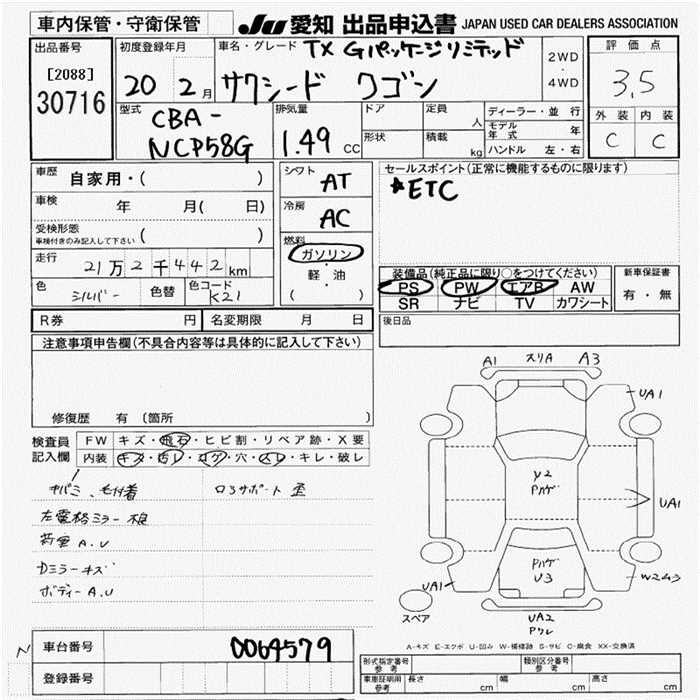 車内保管・守衛保管
JU 愛知 出品申込書 JAPAN USED CAR DEALERS ASSOCIATION
出品番号
[2088]
30716
初度登録年月
20 2月
車名・グレード TX Gパッケージリミテッド
サクシード ワゴン
2WD
・
4WD
評価点
3.5
外装 内装
C C
型式
CBA-
NCP58G
排気量
1.49 CC
ドア
定員
人
形状
積載
kg
ディーラー・並行
モデル年式 年
ハンドル 左・右
車歴
自家用・( )
車検
年 月( 日)
受検形態
車検付きのみ記入して下さい ( )
走行
21万2千442km
色
シルバー
色替
色コード
K21
シフト
AT
冷房
AC
燃料
ガソリン
・
軽・油
( )
セールスポイント(正常に機能するものに限ります)
*ETC
装備品(純正品に限り○をつけてください)
PS PW エアB AW
SR ナビ TV カワシート
新車保証書
有・無
R券 円
名変期限 月 日
後日品
注意事項申告欄(不具合内容等は具体的に記入して下さい)
修復歴 有 (箇所 )
検査員
記入欄
FW キズ・飛石・ヒビ割・リペア跡・X要
内装 キズ・汚レ・コゲ・穴・スレ・キレ・破レ
ロアサポート 歪
左電格ミラー 不良
荷室 A.U
Dミラーキズ
ボディーA.U
A1 スリA A3
UA1
Y2
Pハゲ
UA1
Pハゲ
U3
UA1
W2U3
UA2
Pワレ
スペア
A-キズ E-エクボ U-凹み W-補修跡 S-サビ C-腐食 XX-交換済
N
車台番号
0064579
登録番号
形式指定番号
参考
類別区分番号
参考
車庫証明用
参考
長さ
cm
幅
cm
高さ
cm